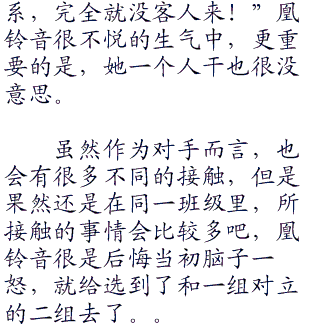 系，完全就没客人来！”凰
铃音很不悦的生气中，更重
要的是，她一个人干也很没
意思。
虽然作为对手而言，也
会有很多不同的接触，但是
果然还是在同一班级里，所
接触的事情会比较多吧，凰
铃音很是后悔当初脑子一
怒，就给选到了和一组对立
的二组去了。。